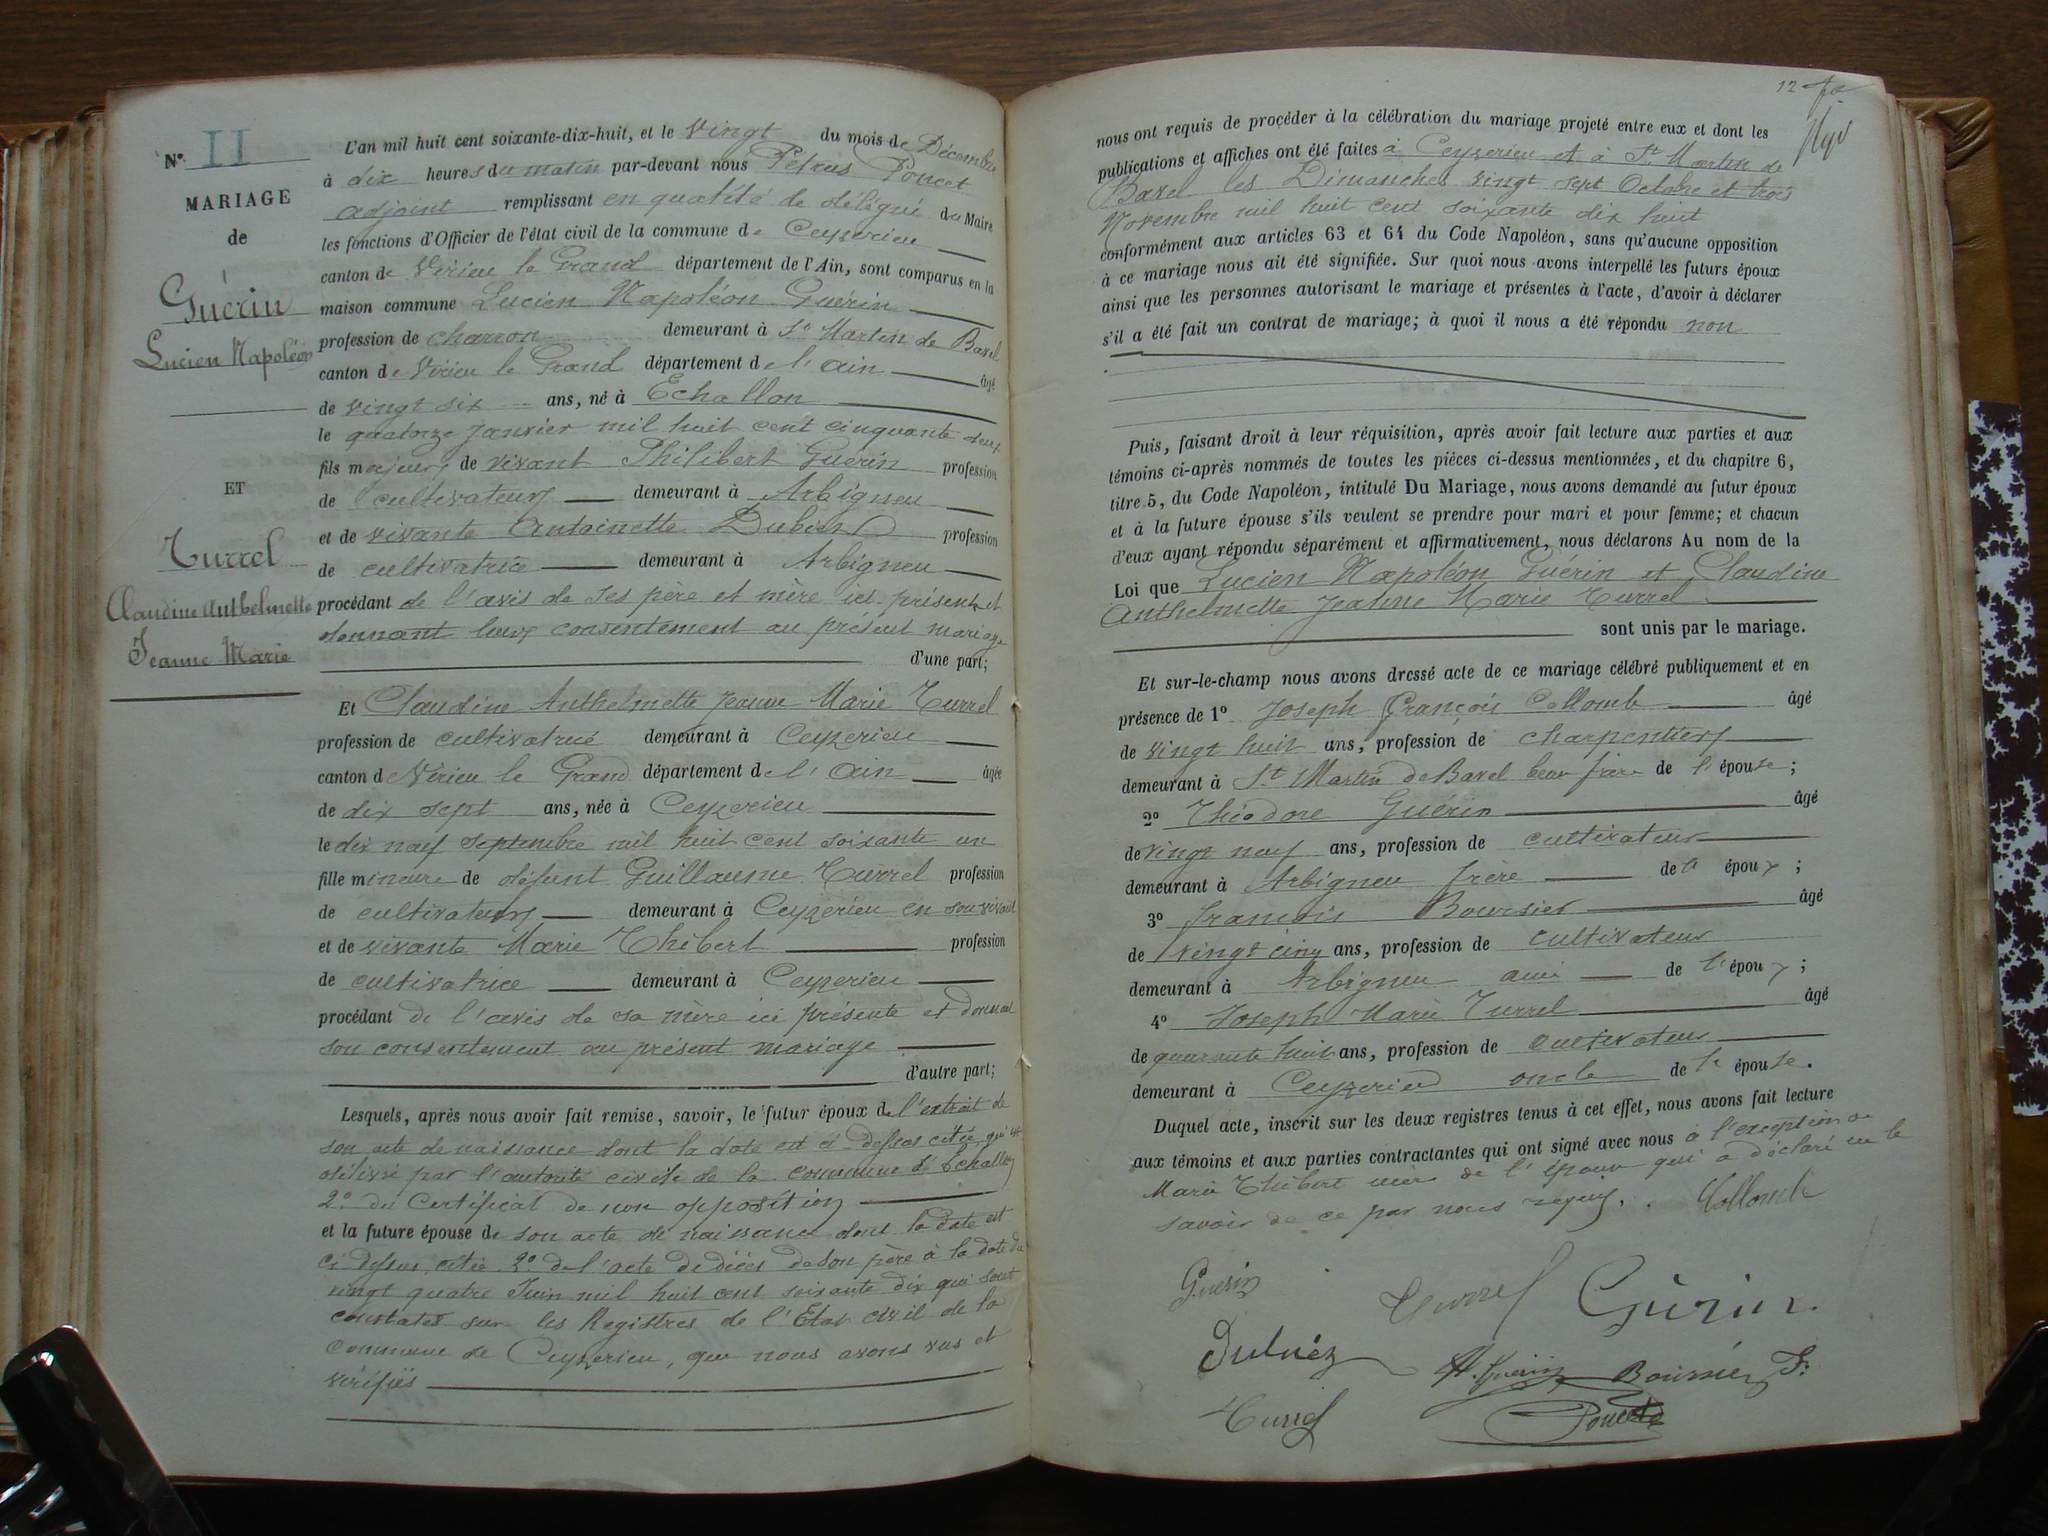 N° II
MARIAGE
de
Guérin
Lucien Napoléon
ET
Turrel
Claudine Anthelmette
Jeanne Marie
L'an mil huit cent soixante-dix-huit, et le vingt du mois de Décembre
à dix heures du matin par-devant nous Pétrus Poncet
adjoint remplissant en qualité de délégué du Maire
les fonctions d'Officier de l'état civil de la commune de Ceyzerieu
canton de Virieu le Grand département de l'Ain, sont comparus en la
maison commune Lucien Napoléon Guérin
profession de charron demeurant à St Martin de Bavel
canton de Virieu le Grand département de l'ain âgé
de vingt six ans, né à Echallon
le quatorze janvier mil huit cent cinquante deux
fils majeur de vivant Philibert Guérin profession
de cultivateur demeurant à Arbigneu
et de vivante Antoinette profession
de cultivatrice demeurant à Arbigneu
procédant de l'avis de ses père et mère ici présents et
donnant leur consentement au présent mariage
d'une part;
Et Claudine Anthelmette Jeanne Marie Turrel
profession de cultivatrice demeurant à Ceyzerieu
canton de Virieu le Grand département de l'ain âgée
de dix sept ans, née à Ceyzerieu
le dix neuf septembre mil huit cent soixante un
fille mineure de défunt Guillaume Turrel profession
de cultivateur demeurant à Ceyzerieu en son vivant
et de vivante Marie Thibert profession
de cultivatrice demeurant à Ceyzerieu
procédant de l'avis de sa mère ici présente et donnant
son consentement au présent mariage
d'autre part;
Lesquels, après nous avoir fait remise, savoir, le futur époux de l'extrait de
son acte de naissance dont la date est ci dessus citée qui est
délivré par l'autorité civile de la commune d'Echallon
2° du Certificat de non opposition
et la future épouse de son acte de naissance dont la date est
ci dessus citée 2° de l'acte de décès de son père à la date du
vingt quatre Juin mil huit cent soixante dix qui sont
constatés sur les Registres de l'Etat civil de la
commune de Ceyzerieu, que nous avons vus et
vérifiés
12
nous ont requis de procéder à la célébration du mariage projeté entre eux et dont les
publications et affiches ont été faites à Ceyzerieu et à St Martin de
Bavel les Dimanches vingt sept Octobre et trois
Novembre mil huit cent soixante dix huit
conformément aux articles 63 et 64 du Code Napoléon, sans qu'aucune opposition
à ce mariage nous ait été signifiée. Sur quoi nous avons interpellé les futurs époux
ainsi que les personnes autorisant le mariage et présentes à l'acte, d'avoir à déclarer
s'il a été fait un contrat de mariage; à quoi il nous a été répondu non
Puis, faisant droit à leur réquisition, après avoir fait lecture aux parties et aux
témoins ci-après nommés de toutes les pièces ci-dessus mentionnées, et du chapitre 6,
titre 5, du Code Napoléon, intitulé Du Mariage, nous avons demandé au futur époux
et à la future épouse s'ils veulent se prendre pour mari et pour femme; et chacun
d'eux ayant répondu séparément et affirmativement, nous déclarons Au nom de la
Loi que Lucien Napoléon Guérin et Claudine
Anthelmette Jeanne Marie Turrel
sont unis par le mariage.
Et sur-le-champ nous avons dressé acte de ce mariage célébré publiquement et en
présence de 1° Joseph François Collomb âgé
de vingt huit ans, profession de charpentier
demeurant à St Martin de Bavel beau frère de l'épouse;
2° Théodore Guérin âgé
de vingt neuf ans, profession de cultivateur
demeurant à Arbigneu frère de l'époux;
3° François Boursier âgé
de vingt cinq ans, profession de cultivateur
demeurant à Arbigneu ami de l'époux;
4° Joseph Marie Turrel âgé
de quarante huit ans, profession de cultivateur
demeurant à Ceyzerieu oncle de l'épouse.
Duquel acte, inscrit sur les deux registres tenus à cet effet, nous avons fait lecture
aux témoins et aux parties contractantes qui ont signé avec nous à l'exception de
Marie Thibert mère de l'épouse qui a déclaré ne le
savoir de ce par nous requis. Collomb
Guérin Turrel Guérin
Boursier F.
Turrel Poncet